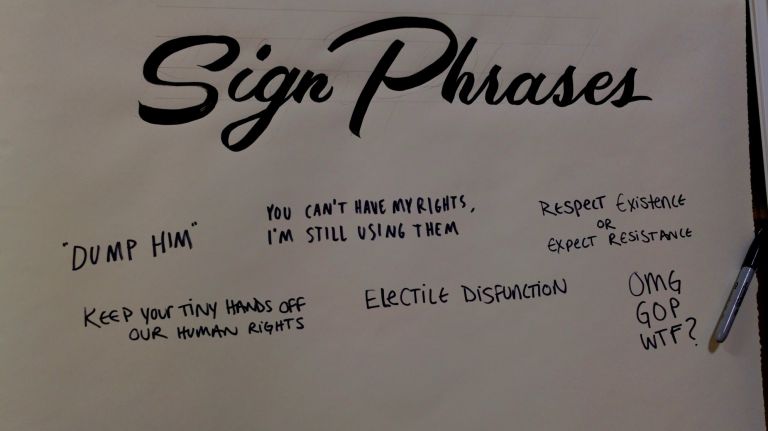 Sign Phrases
"DUMP HIM"
YOU CAN'T HAVE MY RIGHTS,
I'M STILL USING THEM
RESPECT EXISTENCE
OR
EXPECT RESISTANCE
KEEP YOUR TINY HANDS OFF
OUR HUMAN RIGHTS
ELECTILE DISFUNCTION
OMG
GOP
WTF?